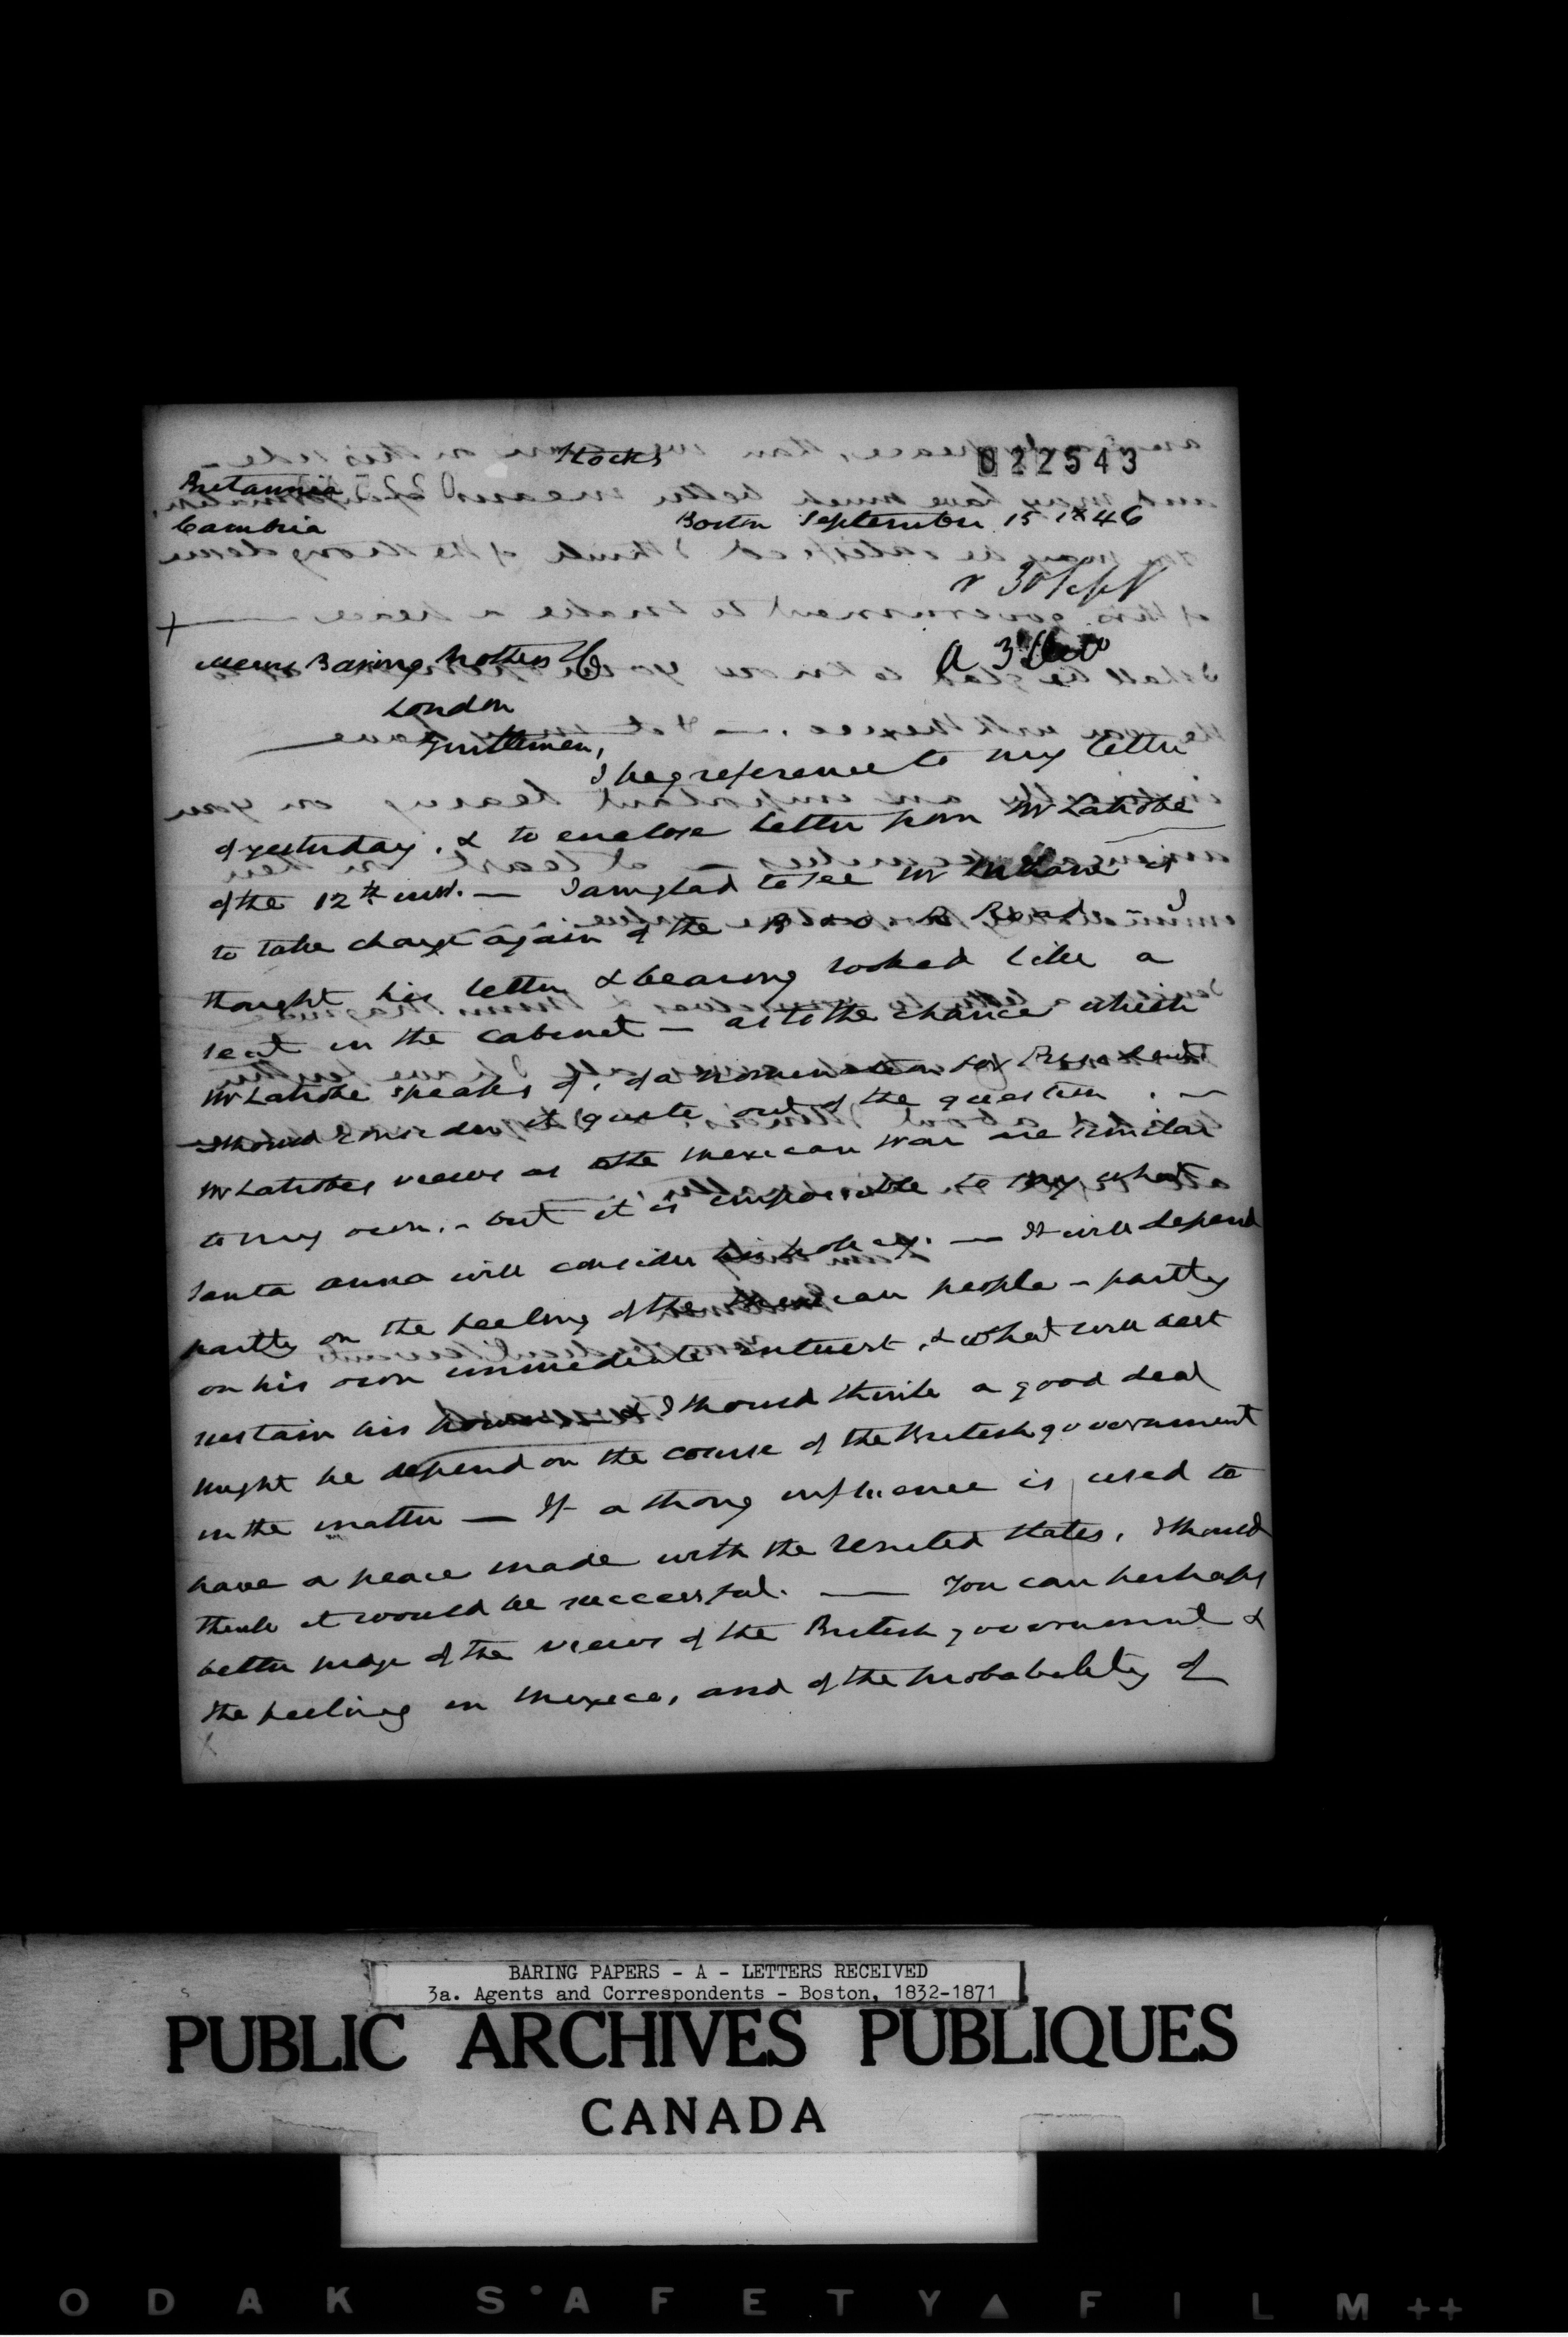 Stocks
022543
Britannia
Cambria
Boston September 15 1846
r 30 Sept
a 3 Octo
Messrs Baring Brothers & Co
London
Gentlemen,
I beg reference to my letter
of yesterday. & to enclose letter from Mr Latrobe
of the 12th inst. — I am glad to see Mr McLane is
to take charge again of the B & O R Road — I
thought his letter & bearing looked like a
seat in the cabinet — as to the chance which
Mr Latrobe speaks of, of a nomination for President
I should consider it quite out of the question. —
Mr Latrobes views as to the Mexican War are similar
to my own. - but it is impossible to say what
Santa Anna will consider his policy. — It will depend
partly on the feeling of the Mexican people - partly
on his own immediate interest, & what will best
sustain his power — & I should think a good deal
might be depend on the course of the British government
in the matter — If a strong influence is used to
have a peace made with the United States, I should
think it would be successful. — You can perhaps
better judge of the views of the British government &
the feeling in Mexico, and of the probability of
BARING PAPERS - A - LETTERS RECEIVED
3a. Agents and Correspondents - Boston, 1832-1871
PUBLIC ARCHIVES PUBLIQUES
CANADA
ODAK SAFETY FILM ++